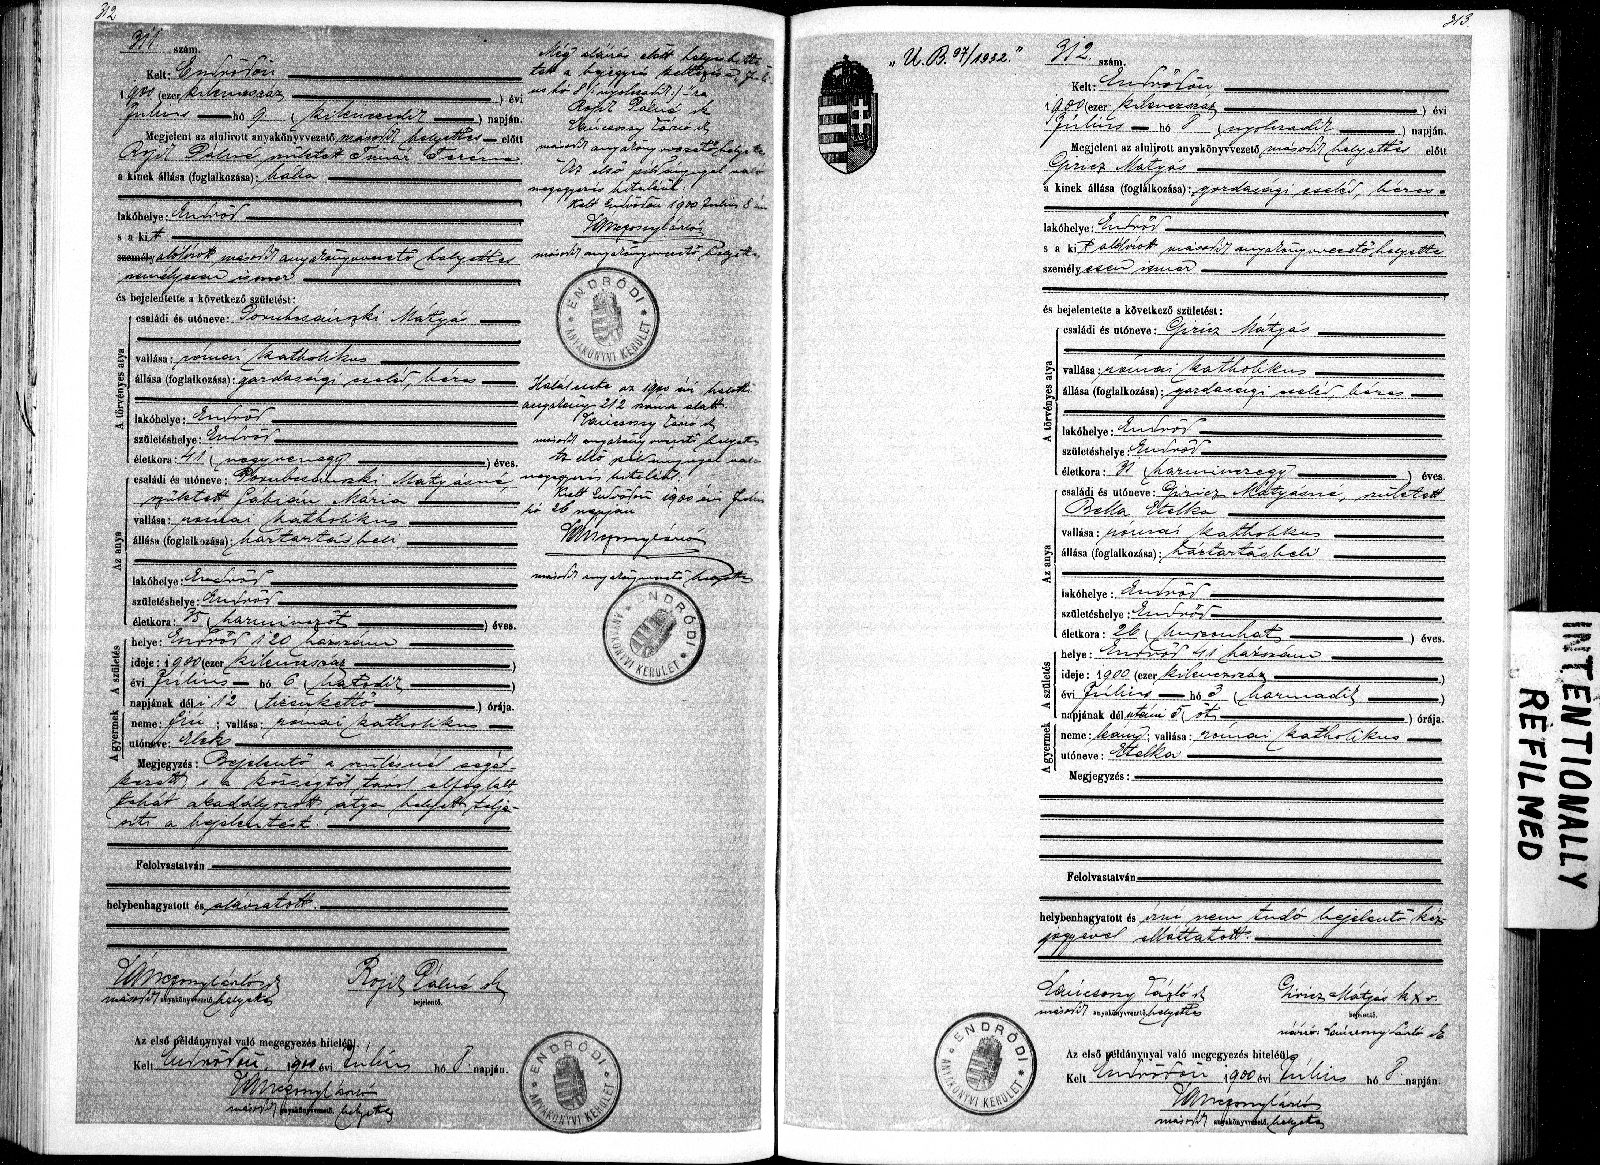 312
311 szám.
Kelt: Endrődön
1900 (ezer kilenczszáz) évi
Július hó 9 (kilenczedik) napján.
Megjelent az alulirott anyakönyvvezető második helyettes előtt
Rojik Pálné született Timár Terézia
a kinek állása (foglalkozása): bába
lakóhelye: Endrőd
s a kit
személy alólirott második anyakönyvvezető helyettes
személyesen ismer
és bejelentette a következő születést:
A törvényes atya
családi és utóneve: Porubcsánszki Mátyás
vallása: római katholikus
állása (foglalkozása): gazdasági cseléd, béres
lakóhelye: Endrőd
születéshelye: Endrőd
életkora: 41 (negyvenegy) éves.
Az anya
családi és utóneve: Porubcsánszki Mátyásné,
született Fabián Mária
vallása: római katholikus
állása (foglalkozása): háztartásbeli
lakóhelye: Endrőd
születéshelye: Endrőd
életkora: 35 (harminczöt) éves.
A születés
helye: Endrőd 120 házszám
ideje: 1900 (ezer kilenczszáz)
évi Július hó 6 (hatodik)
napjának déli 12 (tizenkettő) órája.
A gyermek
neme: fiu; vallása: római katholikus
utóneve: Elek
Megjegyzés: Bejelentő a szülésnél segéd-
kezett s a községtől távol elfoglalt
tehát akadályozott atya helyett telje-
síti a bejelentést.
Felolvastatván
helybenhagyatott és aláiratott.
Lánczonyi László
második anyakönyvvezető helyettes
Rojik Pálné sk
bejelentő.
Az első példánynyal való megegyezés hiteléül
Kelt Endrődön, 1900 évi Július hó 8 napján.
második anyakönyvvezető helyettes
ENDRŐDI
ANYAKÖNYVI KERÜLET
Még aláírás előtt helyesbítte
tett a bejegyzés kelte
Rojik Pálné sk
második anyakönyvvezető helyettes
Az első példánynyal való
megegyezés hiteléül
Kelt Endrődön 1900 Július 8 án
második anyakönyvvezető helyettes
ENDRŐDI
ANYAKÖNYVI KERÜLET
Halálesete az 1900 évi haláli
anyakönyv 212 szám alatt.
második anyakönyvvezető helyettes
Az első példánynyal való
megegyezés hiteléül.
Kelt Endrődön 1900 évi Július
hó 26 napján
második anyakönyvvezető helyettes
ENDRŐDI
ANYAKÖNYVI KERÜLET
313
„U. B. 97/1932."
312 szám.
Kelt: Endrődön
1900 (ezer kilenczszáz) évi
Július hó 8 (nyolczadik) napján.
Megjelent az alulirott anyakönyvvezető második helyettes előtt
Giricz Mátyás
a kinek állása (foglalkozása): gazdasági cseléd, béres
lakóhelye: Endrőd
s a kit alólirott második anyakönyvvezető helyettes
személyesen ismer
és bejelentette a következő születést:
A törvényes atya
családi és utóneve: Giricz Mátyás
vallása: római katholikus
állása (foglalkozása): gazdasági cseléd, béres
lakóhelye: Endrőd
születéshelye: Endrőd
életkora: 31 (harminczegy) éves.
Az anya
családi és utóneve: Giricz Mátyásné, született
Bella Etelka
vallása: római katholikus
állása (foglalkozása): háztartásbeli
lakóhelye: Endrőd
születéshelye: Endrőd
életkora: 26 (huszonhat) éves.
A születés
helye: Endrőd 41 házszám
ideje: 1900 (ezer kilenczszáz
évi Július hó 3 (harmadik)
napjának délutáni 5 (öt) órája.
A gyermek
neme: leány; vallása: római katholikus
utóneve: Etelka
Megjegyzés:
Felolvastatván
helybenhagyatott és írni nem tudó bejelentő kéz-
jegyével elláttatott.
második anyakönyvvezető helyettes
Giricz Mátyás k x v.
bejelentő.
Az első példánynyal való megegyezés hiteléül
Kelt Endrődön 1900 évi Július hó 8. napján.
második anyakönyvvezető helyettes
ENDRŐDI
ANYAKÖNYVI KERÜLET
INTENTIONALLY
REFILMED